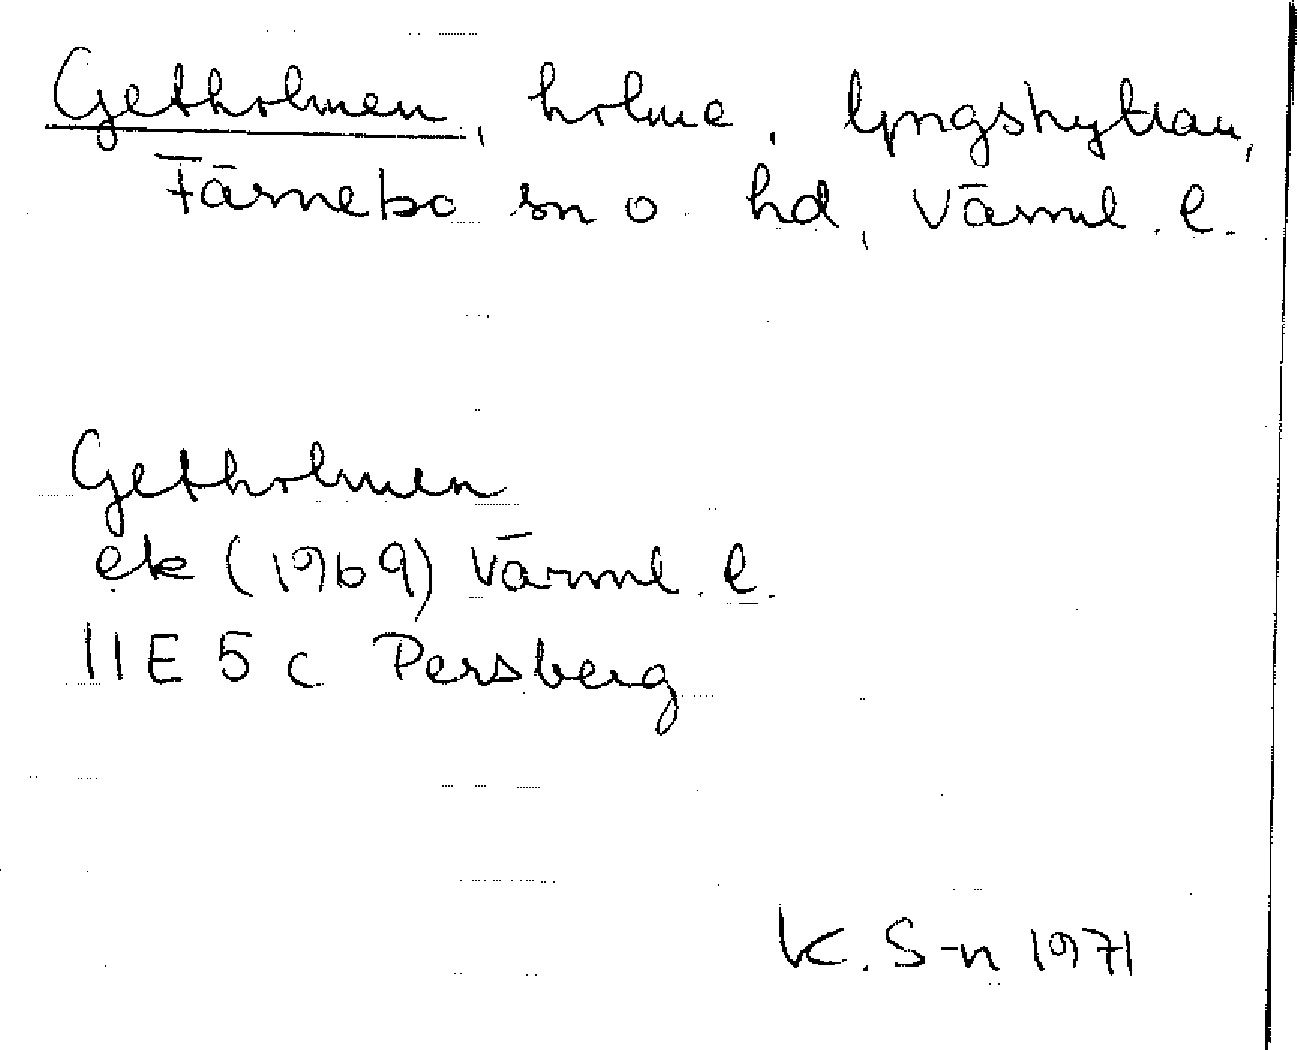 Getholmen, holme, Lyngshyttan,
Färnebo sn o hd, Värml. l.
Getholmen
ek (1969) Värml. l.
11E 5 c Persberg
K. S-n 1971